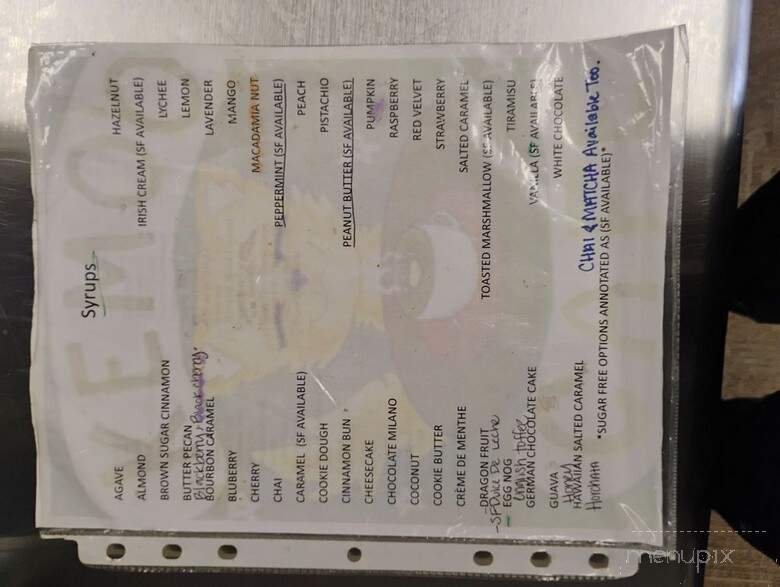 Syrups
AGAVE
ALMOND
BROWN SUGAR CINNAMON
BUTTER PECAN
Blackberry, Black cherry.
BOURBON CARAMEL
BLUBERRY
CHERRY
CHAI
CARAMEL (SF AVAILABLE)
COOKIE DOUGH
CINNAMON BUN
CHEESECAKE
CHOCOLATE MILANO
COCONUT
COOKIE BUTTER
CRÈME DE MENTHE
DRAGON FRUIT
-SF Dulce De Leche
EGG NOG
English toffee
GERMAN CHOCOLATE CAKE
GUAVA
Honey
HAWAIIAN SALTED CARAMEL
Horchata
HAZELNUT
IRISH CREAM (SF AVAILABLE)
LYCHEE
LEMON
LAVENDER
MANGO
MACADAMIA NUT
PEPPERMINT (SF AVAILABLE)
PEACH
PISTACHIO
PEANUT BUTTER (SF AVAILABLE)
PUMPKIN
RASPBERRY
RED VELVET
STRAWBERRY
SALTED CARAMEL
TOASTED MARSHMALLOW (SF AVAILABLE)
TIRAMISU
VANILLA (SF AVAILABLE)
WHITE CHOCOLATE
CHAI & MATCHA Available Too.
*SUGAR FREE OPTIONS ANNOTATED AS (SF AVAILABLE)*
menupix